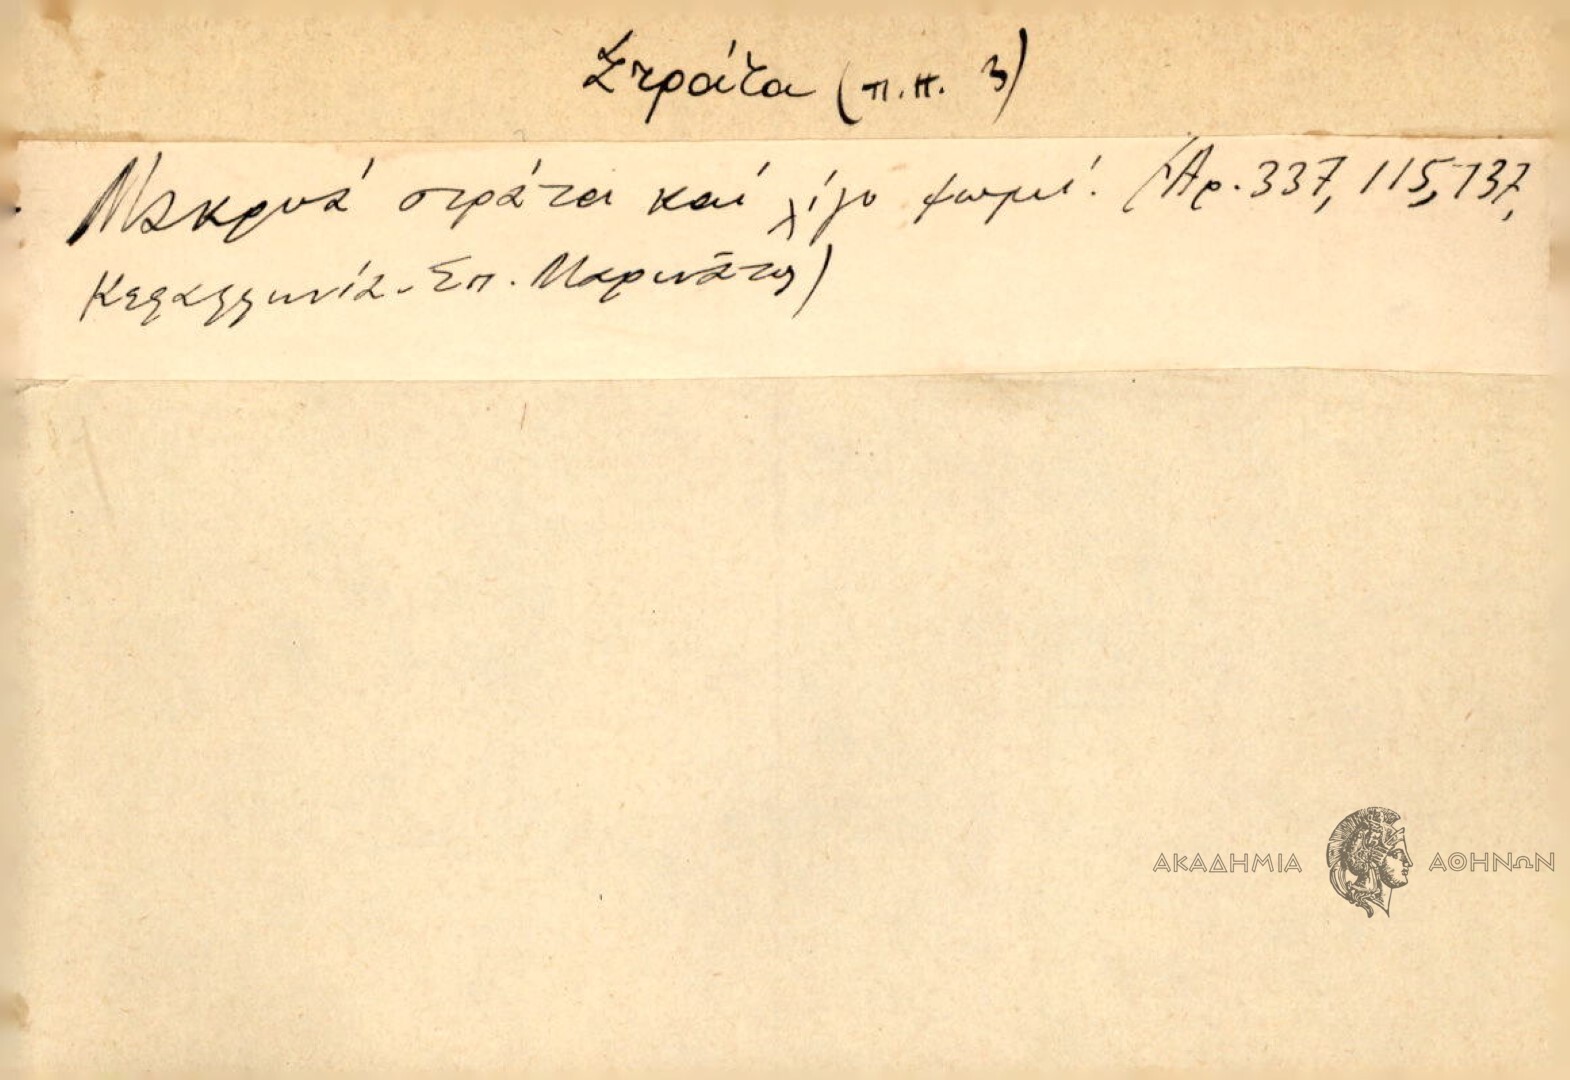 Στράτα (π.π. 3)
Μακρυά στράτα καί λίγο ψωμί. (Ἀρ. 337, 115, 137,
Κεφαλληνία. Σπ. Μαρινᾶτος)
ΑΚΑΔΗΜΙΑ ΑΘΗΝΩΝ